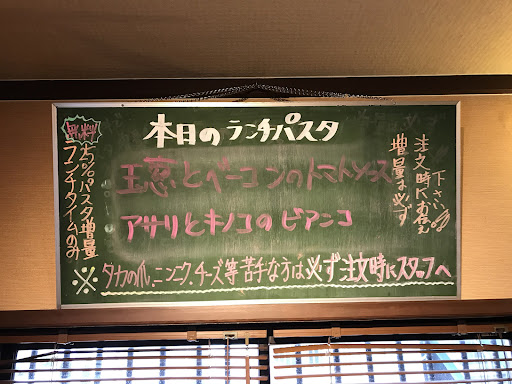 本日のランチパスタ
玉葱とベーコンのトマトソース
アサリとキノコのビアンコ
無料
25%パスタ増量
ランチタイムのみ
増量は必ず
注文時にお伝え
下さい
※タカの爪、ニンニク、チーズ等苦手な方は必ず注文時にスタッフへ